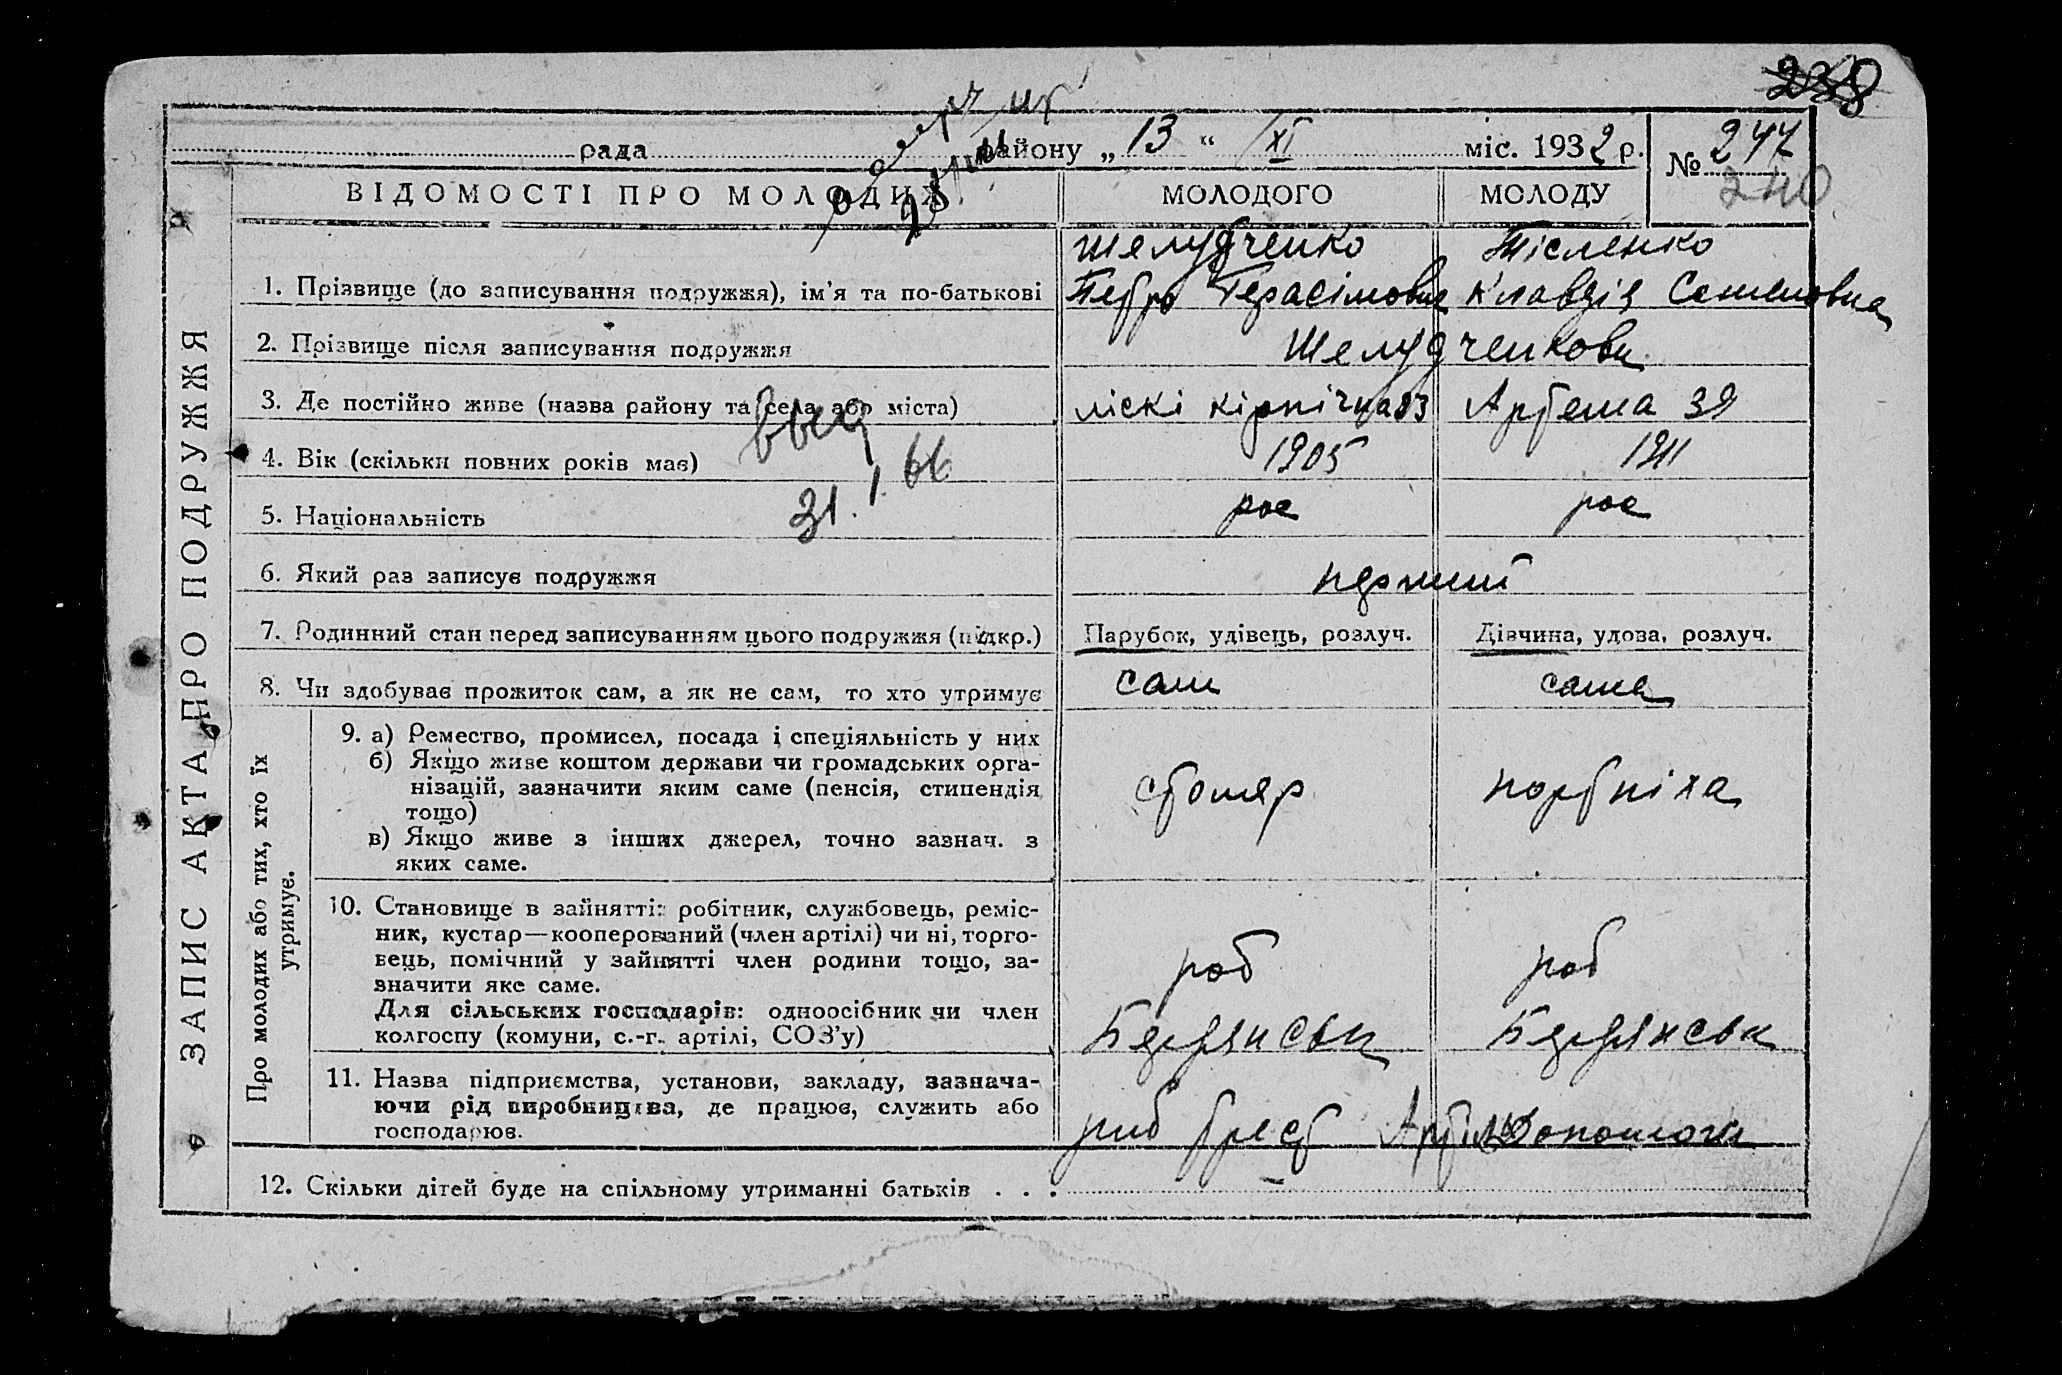 238
рада района „13" XI міс. 1932 р. № 244
240
ВІДОМОСТІ ПРО МОЛОДИХ МОЛОДОГО МОЛОДУ
Шелудченко Тісленко
1. Прізвище (до записування подружжя), ім'я та по-батькові Петро Герасімович Клавдія Семеновна
2. Прізвище після записування подружжя Шелудченкови
3. Де постійно живе (назва району та села або міста) ліскі кірпічна 83 Артема 39
4. Вік (скільки повних років має) 1905 1911
выд
31.1.66
5. Національність рос рос
6. Який раз записує подружжя перший
7. Родинний стан перед записуванням цього подружжя (підкр.) Парубок, удівець, розлуч. Дівчина, удова, розлуч.
8. Чи здобуває прожиток сам, а як не сам, то хто утримує сам сама
ЗАПИС АКТА ПРО ПОДРУЖЖЯ
Про молодих або тих, хто їх
утримує.
9. а) Ремество, промисел, посада і спеціяльність у них
б) Якщо живе коштом держави чи громадських орга-
нізацій, зазначити яким саме (пенсія, стипендія
тощо)
в) Якщо живе з інших джерел, точно зазнач. з
яких саме.
столяр портніха
10. Становище в занятті: робітник, службовець, реміс-
ник, кустар—кооперований (член артілі) чи ні, торго-
вець, помічний у зайнятті член родини тощо, за-
значити яке саме.
Для сільських господарів: одноосібник чи член
колгоспу (комуни, с.-г. артілі, СОЗ'у)
роб роб
Бердянськ Бердянськ
11. Назва підприємства, установи, закладу, зазнача-
ючи рід виробництва, де працює, служить або
господарює.
риб трест Артіль Допомога
12. Скільки дітей буде на спільному утриманні батьків . . .